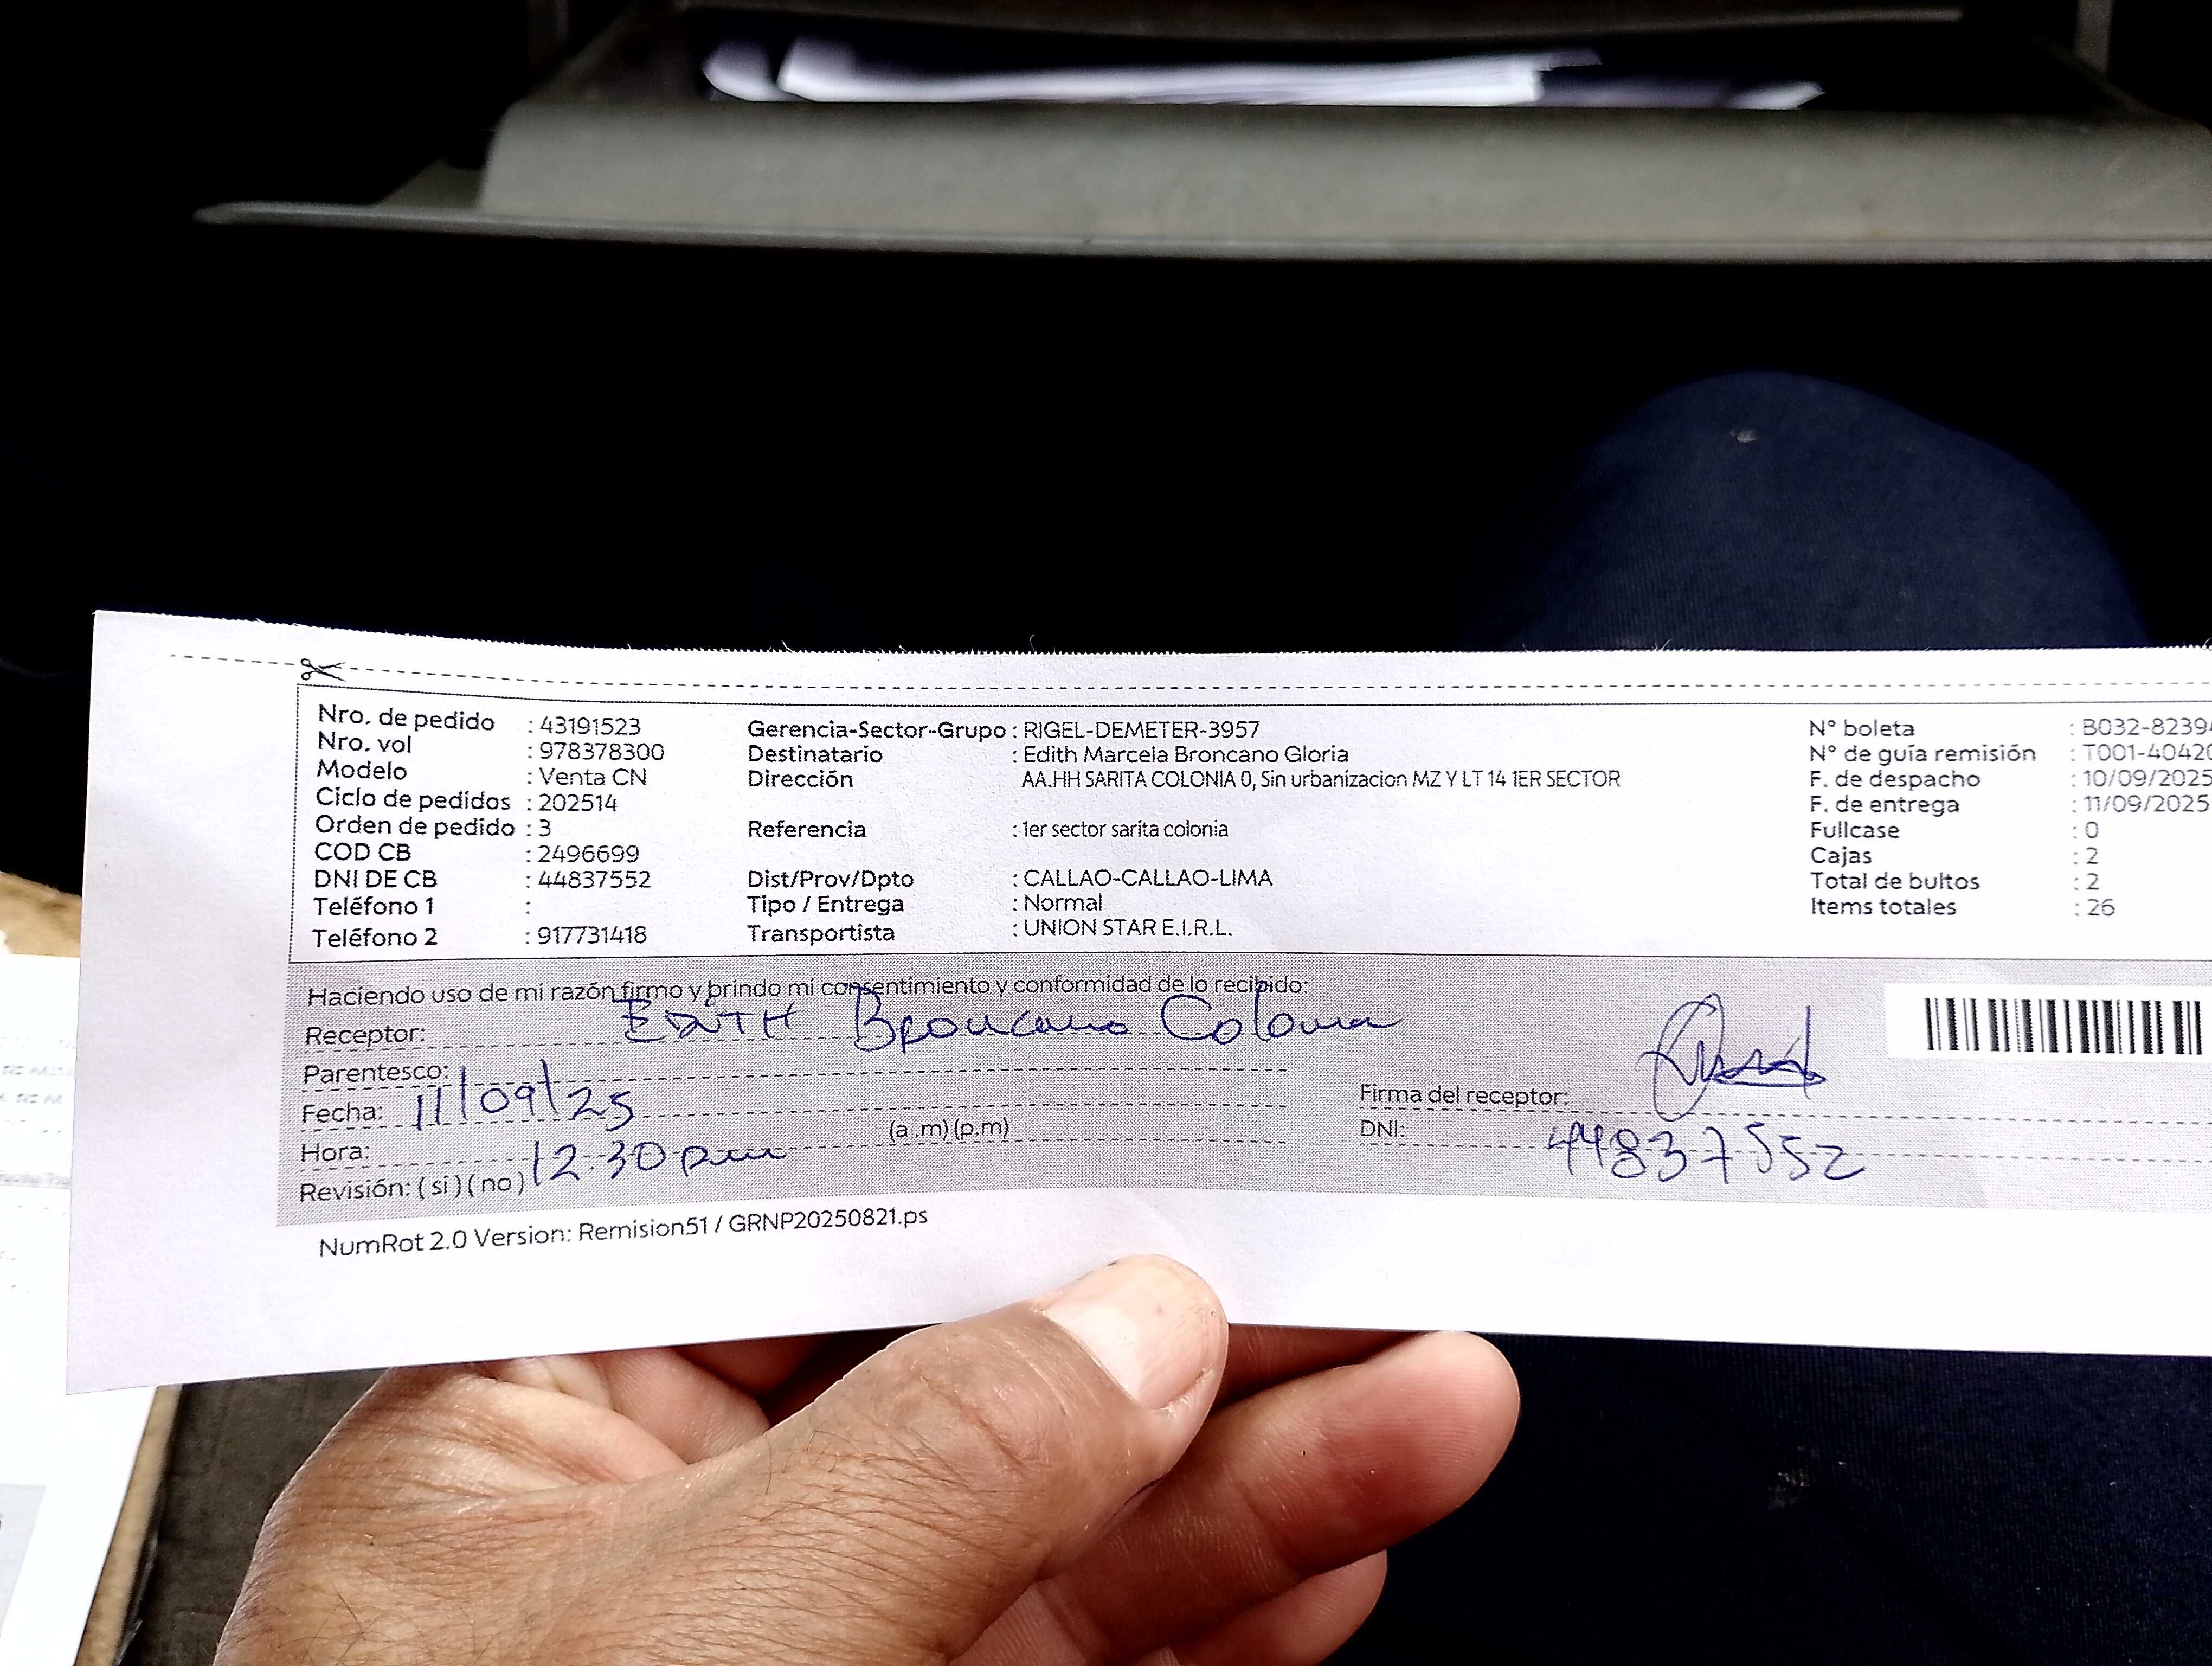 Nro. de pedido : 43191523
Nro. vol : 978378300
Modelo : Venta CN
Ciclo de pedidos : 202514
Orden de pedido : 3
COD CB : 2496699
DNI DE CB : 44837552
Teléfono 1 :
Teléfono 2 : 917731418
Gerencia-Sector-Grupo : RIGEL-DEMETER-3957
Destinatario : Edith Marcela Broncano Gloria
Dirección AA.HH SARITA COLONIA 0, Sin urbanizacion MZ Y LT 14 1ER SECTOR
Referencia : 1er sector sarita colonia
Dist/Prov/Dpto : CALLAO-CALLAO-LIMA
Tipo / Entrega : Normal
Transportista : UNION STAR E.I.R.L.
N° boleta : B032-8239
N° de guía remisión : T001-40420
F. de despacho : 10/09/2025
F. de entrega : 11/09/2025
Fullcase : 0
Cajas : 2
Total de bultos : 2
Items totales : 26
Haciendo uso de mi razón firmo y brindo mi consentimiento y conformidad de lo recibido:
Receptor: EDITH Broncano
Parentesco:
Fecha: 11/09/25
Hora: 12.30 pm (a .m) (p.m)
Revisión: ( si ) ( no )
Firma del receptor:
DNI: 44837552
NumRot 2.0 Version: Remision51 / GRNP20250821.ps